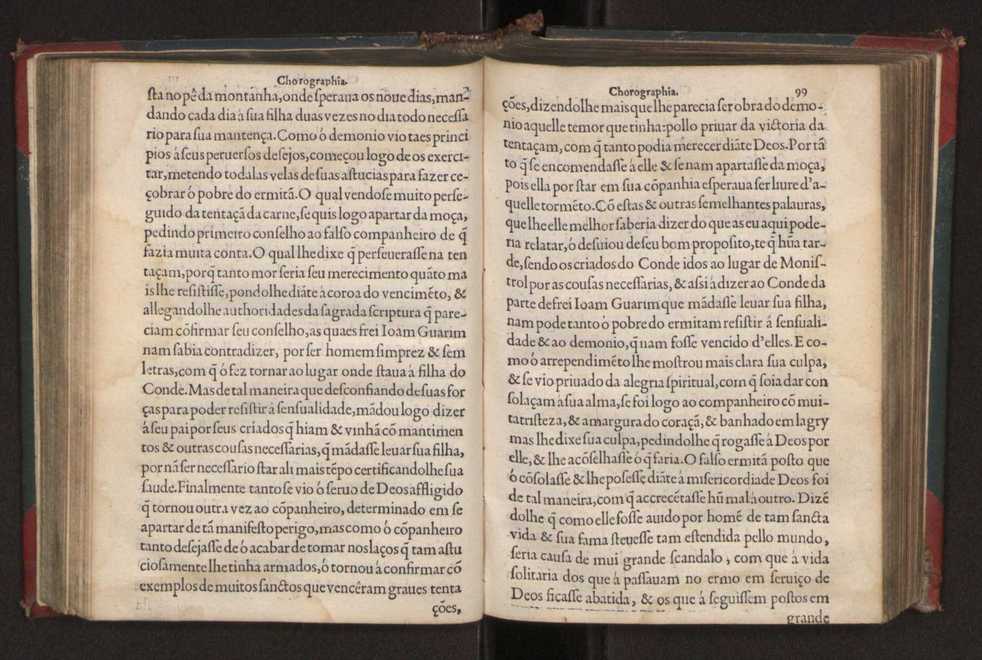 Chorographia.
sta no pê da montanha, onde speraua os noue dias, man-
dando cada dia â sua filha duas vezes no dia todo necessa
rio para sua mantença. Como ô demonio vio taes princi
pios â seus peruersos desejos, começou logo de os exerci-
tar, metendo todalas velas de suas astucias para fazer ce-
çobrar ô pobre do ermitã. O qual vendose muito perse-
guido da tentaçã da carne, se quis logo apartar da moça,
pedindo primeiro conselho ao falso companheiro de q̃
fazia muita conta. O qual lhe dixe q̃ perseuerasse na ten
taçam, porq̃ tanto mor seria seu merecimento quãto ma
is lhe resistisse, pondolhe diãte â coroa do vencimẽto, &
allegandolhe authoridades da sagrada scriptura q̃ pare-
ciam cõfirmar seu conselho, as quaes frei Ioam Guarim
nam sabia contradizer, por ser homem simprez & sem
letras, com q̃ ô fez tornar ao lugar onde staua â filha do
Conde. Mas de tal maneira que desconfiando de suas for
ças para poder resistir â sensualidade, mãdou logo dizer
â seu pai por seus criados q̃ hiam & vinhã cõ mantimen
tos & outras cousas necessarias, q̃ mãdasse leuar sua filha,
por nã ser necessario star ali mais tẽpo certificandolhe sua
saude. Finalmente tanto se vio ô seruo de Deos affligido
q̃ tornou outra vez ao cõpanheiro, determinado em se
apartar de tã manifesto perigo, mas como ô cõpanheiro
tanto desejasse de ô acabar de tomar nos laços q̃ tam astu
ciosamente lhe tinha armados, ô tornou â confirmar cõ
exemplos de muitos sanctos que vencêram graues tenta
ções,
Chorographia. 99
ções, dizendolhe mais que lhe parecia ser obra do demo-
nio aquelle temor que tinha: pollo priuar da victoria da
tentaçam, com q̃ tanto podia merecer diãte Deos. Por tã
to q̃ se encomendasse â elle & se nam apartasse da moça,
pois ella por star em sua cõpanhia esperaua ser liure d'a-
quelle tormẽto. Cõ estas & outras semelhantes palauras,
que lhe elle melhor saberia dizer do que as eu aqui pode-
ria relatar, ô desuiou de seu bom proposito, te q̃ hũa tar-
de, sendo os criados do Conde idos ao lugar de Monis-
trol por as cousas necessarias, & assi â dizer ao Conde da
parte de frei Ioam Guarim que mãdasse leuar sua filha,
nam pode tanto ô pobre do ermitam resistir â sensuali-
dade & ao demonio, q̃ nam fosse vencido d'elles. E co-
mo ô arrependimẽto lhe mostrou mais clara sua culpa,
& se vio priuado da alegria spiritual, com q̃ soia dar con
solaçam â sua alma, se foi logo ao companheiro cõ mui-
ta tristeza, & amargura do coraçã, & banhado em lagry
mas lhe dixe sua culpa, pedindolhe q̃ rogasse â Deos por
elle, & lhe acõselhasse ô q̃ faria. O falso ermitã posto que
ô cõsolasse & lhe posesse diãte â misericordia de Deos foi
de tal maneira, com q̃ accrecẽtasse hũ mal â outro. Dizẽ
dolhe q̃ como elle fosse auido por homẽ de tam sancta
vida & sua fama steuesse tam estendida pello mundo,
seria causa de mui grande scandalo, com que â vida
solitaria dos que â passauam no ermo em seruiço de
Deos ficasse abatida, & os que â seguissem postos em
grande